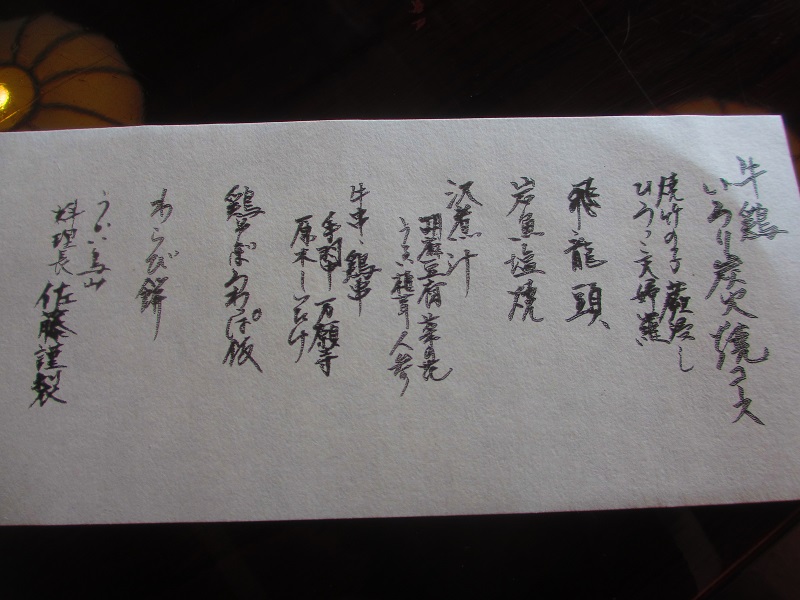 牛鶏
いろり炭火焼コース
焼竹の子 蕨浸し
ひろっこ天婦羅
飛龍頭
岩魚塩焼
沢煮汁
胡麻豆腐 菜の花
うど 椎茸 人参
牛串、鶏串
手羽中 万願寺
原木しいたけ
鶏そぼろわっぱ飯
わらび餅
うかい鳥山
料理長 佐藤謹製